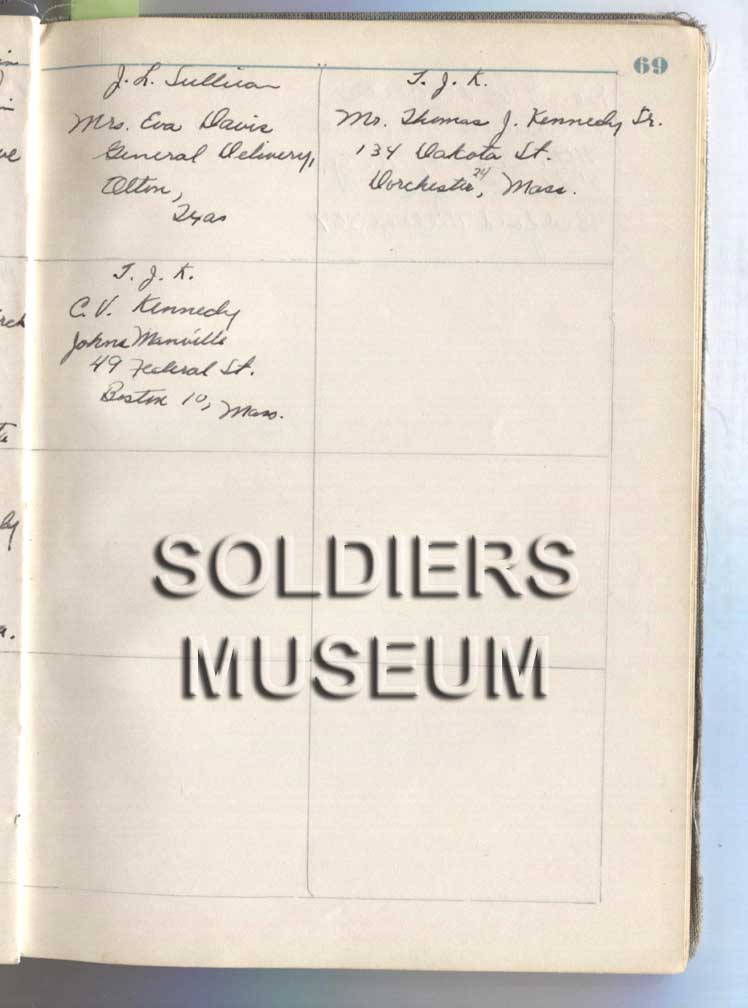 69
J. L. Sullivan
Mrs. Eva Davis
General Delivery,
Olton,
Texas
T. J. K.
Mr. Thomas J. Kennedy Sr.
134 Dakota St.
Dorchester, 24 Mass.
T. J. K.
C. V. Kennedy
Johns Manville
49 Federal St.
Boston 10, Mass.
SOLDIERS
MUSEUM